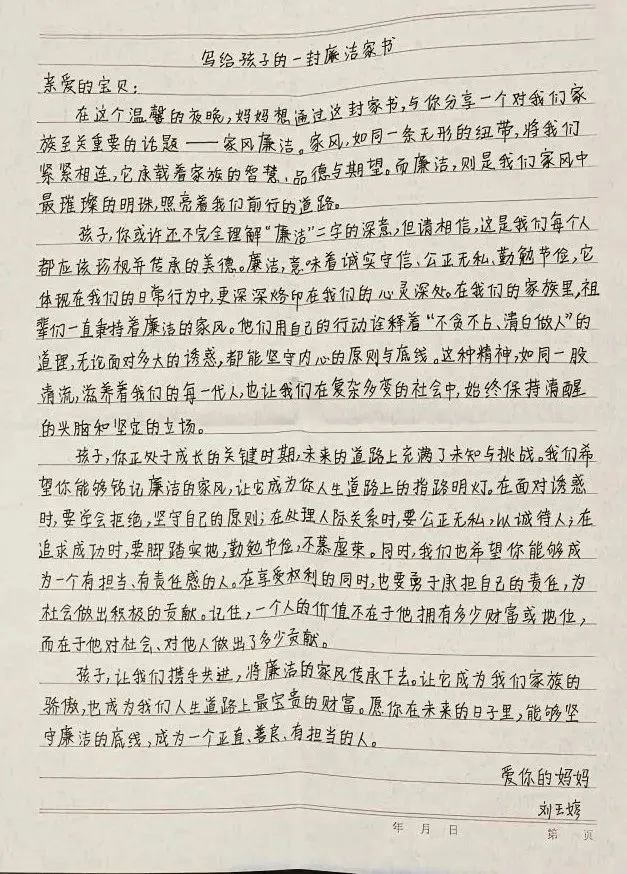 写给孩子的一封廉洁家书
亲爱的宝贝：
在这个温馨的夜晚，妈妈想通过这封家书，与你分享一个对我们家
族至关重要的话题——家风廉洁。家风，如同一条无形的纽带，将我们
紧紧相连，它承载着家族的智慧、品德与期望。而廉洁，则是我们家风中
最璀璨的明珠，照亮着我们前行的道路。
孩子，你或许还不完全理解“廉洁”二字的深意，但请相信，这是我们每个人
都应该珍视并传承的美德。廉洁，意味着诚实守信、公正无私、勤勉节俭，它
体现在我们的日常行为中，更深深烙印在我们的心灵深处。在我们的家族里，祖
辈们一直秉持着廉洁的家风。他们用自己的行动诠释着“不贪不占、清白做人”的
道理，无论面对多大的诱惑，都能坚守内心的原则与底线。这种精神，如同一股
清流，滋养着我们的每一代人，也让我们在复杂多变的社会中，始终保持清醒
的头脑和坚定的立场。
孩子，你正处于成长的关键时期，未来的道路上充满了未知与挑战。我们希
望你能够铭记廉洁的家风，让它成为你人生道路上的指路明灯。在面对诱惑
时，要学会拒绝，坚守自己的原则；在处理人际关系时，要公正无私，以诚待人；在
追求成功时，要脚踏实地，勤勉节俭，不慕虚荣。同时，我们也希望你能够成
为一个有担当、有责任感的人。在享受权利的同时，也要勇于承担自己的责任，为
社会做出积极的贡献。记住，一个人的价值不在于他拥有多少财富或地位，
而在于他对社会、对他人做出了多少贡献。
孩子，让我们携手共进，将廉洁的家风传承下去。让它成为我们家族的
骄傲，也成为我们人生道路上最宝贵的财富。愿你在未来的日子里，能够坚
守廉洁的底线，成为一个正直、善良、有担当的人。
爱你的妈妈
刘玉婷
年 月 日 第 页